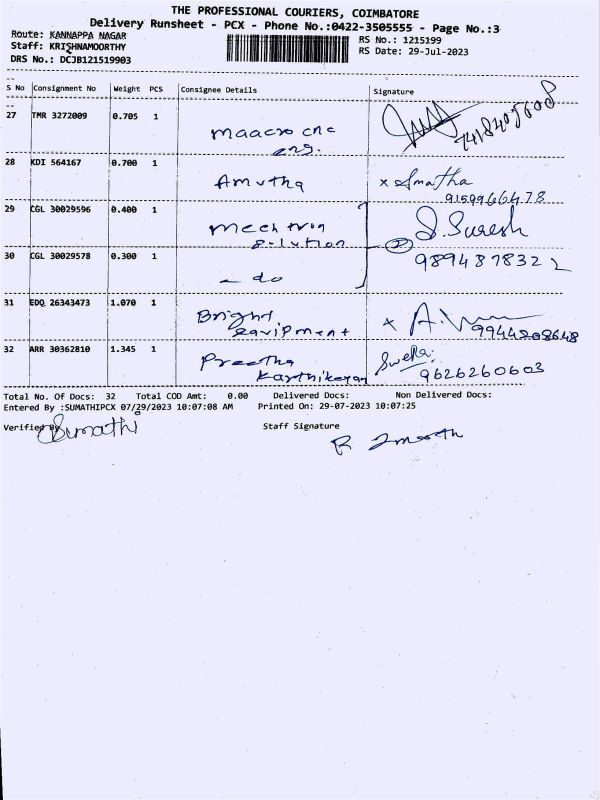 THE PROFESSIONAL COURIERS, COIMBATORE
Delivery Runsheet - PCX - Phone No.:0422-3505555 - Page No.:3
Route: KANNAPPA NAGAR
RS No.: 1215199
Staff: KRISHNAMOORTHY
RS Date: 29-Jul-2023
DRS No.: DCJB121519903
S No Consignment No Weight PCS Consignee Details Signature
27 TMR 3272009 0.705 1 maacro cnc
eng.
28 KDI 564167 0.700 1 Amutha x Amatha
9159966478
29 CGL 30029596 0.400 1 mechtrin
solution
S. Suresh
30 CGL 30029578 0.300 1 - do 9894878322
31 EDQ 26343473 1.070 1 Bright
equipment
x A. 9944208648
32 ARR 30362810 1.345 1 Preetha
Karthikeyan
Swetha
9626260603
Total No. Of Docs: 32 Total COD Amt: 0.00 Delivered Docs: Non Delivered Docs:
Entered By :SUMATHIPCX 07/29/2023 10:07:08 AM Printed On: 29-07-2023 10:07:25
Verified By Sumathi
Staff Signature